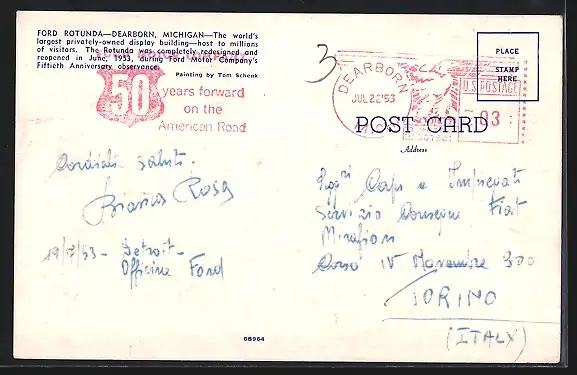 FORD ROTUNDA—DEARBORN, MICHIGAN—The world's
largest privately-owned display building—host to millions
of visitors. The Rotunda was completely redesigned and
reopened in June, 1953, during Ford Motor Company's
Fiftieth Anniversary observance.
Painting by Tom Schenk
50
years forward
on the
American Road
3
DEARBORN
JUL 22 '53
MICH.
U.S. POSTAGE
03
PLACE
STAMP
HERE
POST CARD
Address
Cordiali saluti
Bianco Rosa
19/7/53 - Detroit -
Officine Ford
Sigg.ri Capi e Impiegati
Servizio Consegne Fiat
Mirafiori
Corso IV Novembre 300
TORINO
(ITALY)
68964